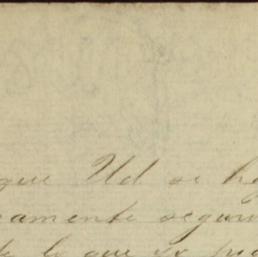 que Ud se ha
camente segur
lo que se